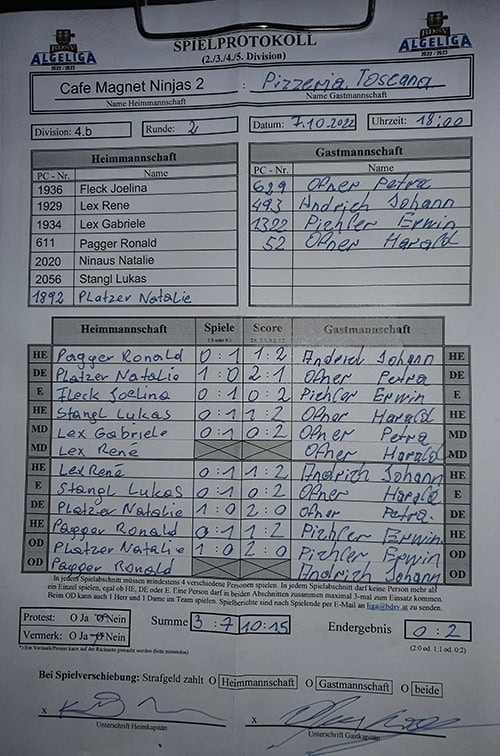 BDSV
ALGELIGA
2022 / 2023
SPIELPROTOKOLL
(2./3./4./5. Division)
BDSV
ALGELIGA
2022 / 2023
Cafe Magnet Ninjas 2 : Pizzeria Toscana
Name Heimmannschaft Name Gastmannschaft
Division: 4.b Runde: 2 Datum: 7.10.2022 Uhrzeit: 18:00
Heimmannschaft Gastmannschaft
PC - Nr. Name PC - Nr. Name
1936 Fleck Joelina 629 Ofner Petra
1929 Lex Rene 493 Andrich Johann
1934 Lex Gabriele 1322 Pichler Erwin
611 Pagger Ronald 52 Ofner Harald
2020 Ninaus Natalie
2056 Stangl Lukas
1892 Platzer Natalie
Heimmannschaft Spiele Score Gastmannschaft
HE Pagger Ronald 0:1 1:2 Andrich Johann HE
DE Platzer Natalie 1:0 2:1 Ofner Petra DE
E Fleck Joelina 0:1 0:2 Pichler Erwin E
HE Stangl Lukas 0:1 1:2 Ofner Harald HE
MD Lex Gabriele 0:1 0:2 Ofner Petra MD
MD Lex René Ofner Harald MD
HE Lex René 0:1 1:2 Andrich Johann HE
E Stangl Lukas 0:1 0:2 Ofner Harald E
DE Platzer Natalie 1:0 2:0 Ofner Petra DE
HE Pagger Ronald 0:1 1:2 Pichler Erwin HE
OD Platzer Natalie 1:0 2:0 Pichler Erwin OD
OD Pagger Ronald Andrich Johann OD
In jedem Spielabschnitt müssen mindestens 4 verschiedene Personen spielen. In jedem Spielabschnitt darf keine Person mehr als
ein Einzel spielen, egal ob HE, DE oder E. Eine Person darf in beiden Abschnitten zusammen maximal 3-mal zum Einsatz kommen.
Beim OD kann auch 1 Herr und 1 Dame im Team spielen. Spielberichte sind nach Spielende per E-Mail an liga@bdsv.at zu senden.
Protest: O Ja O Nein Summe 3 : 7 10:15 Endergebnis 0 : 2
Vermerk: O Ja O Nein (2:0 od. 1:1 od. 0:2)
*) Ein Vermerk/Protest kann auf der Rückseite gemacht werden (bitte umwenden)
Bei Spielverschiebung: Strafgeld zahlt O Heimmannschaft O Gastmannschaft O beide
x x
Unterschrift Heimkapitän Unterschrift Gastkapitän